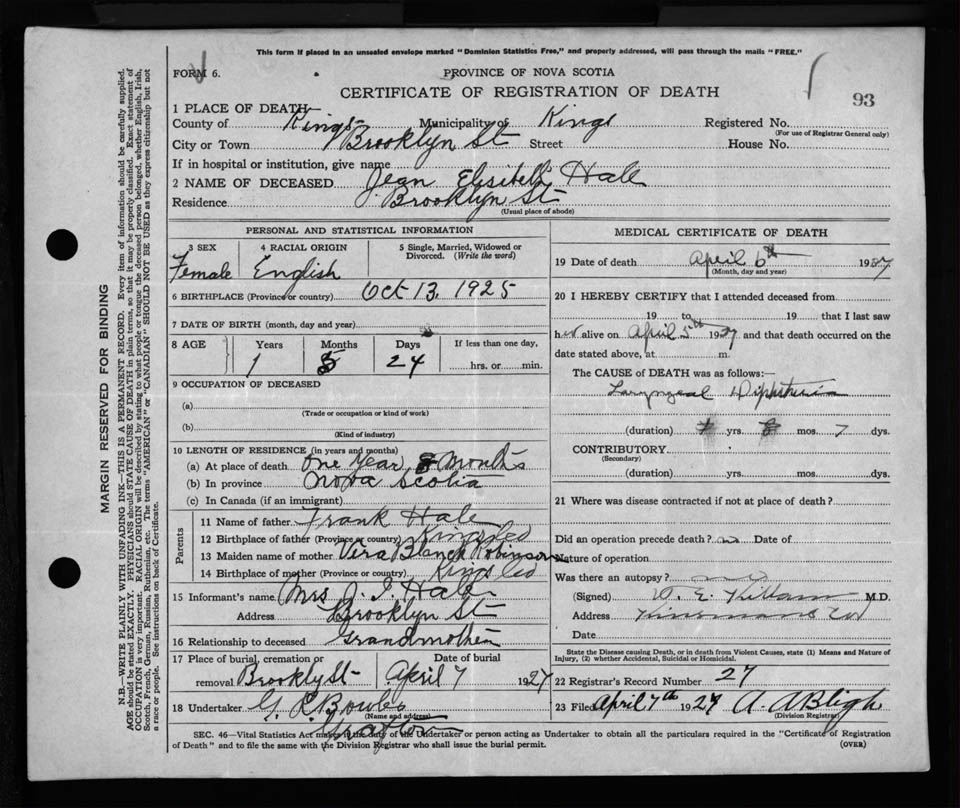 This form if placed in an unsealed envelope marked "Dominion Statistics Free," and properly addressed, will pass through the mails "FREE."
FORM 6.
PROVINCE OF NOVA SCOTIA
CERTIFICATE OF REGISTRATION OF DEATH
93
1 PLACE OF DEATH—
County of Kings Municipality of Kings Registered No.
(For use of Registrar General only)
City or Town Brooklyn St Street House No.
If in hospital or institution, give name
2 NAME OF DECEASED Jean Hale
Residence Brooklyn St
(Usual place of abode)
PERSONAL AND STATISTICAL INFORMATION
3 SEX 4 RACIAL ORIGIN 5 Single, Married, Widowed or Divorced. (Write the word)
Female English
6 BIRTHPLACE (Province or country) Oct 13, 1925
7 DATE OF BIRTH (month, day and year)
8 AGE Years Months Days If less than one day,
1 5 24 hrs. or min.
9 OCCUPATION OF DECEASED
(a)
(Trade or occupation or kind of work)
(b)
(Kind of industry)
10 LENGTH OF RESIDENCE (in years and months)
(a) At place of death One Year, Months
(b) In province Nova Scotia
(c) In Canada (if an immigrant)
Parents
11 Name of father Frank Hale
12 Birthplace of father (Province or country) Kings Co
13 Maiden name of mother Vera Blanch Robinson
14 Birthplace of mother (Province or country) Kings Co
15 Informant's name Mrs Hale
Address Brooklyn St
16 Relationship to deceased Grandmother
17 Place of burial, cremation or removal Date of burial
Brooklyn St April 7 1927
18 Undertaker Bowles
(Name and address)
MEDICAL CERTIFICATE OF DEATH
19 Date of death April 6th 1927
(Month, day and year)
20 I HEREBY CERTIFY that I attended deceased from
19 to 19 that I last saw
her alive on April 5th 1927 and that death occurred on the
date stated above, at m.
The CAUSE of DEATH was as follows:—
Laryngeal Diphtheria
(duration) yrs. mos. 7 dys.
CONTRIBUTORY
(Secondary)
(duration) yrs. mos. dys.
21 Where was disease contracted if not at place of death?
Did an operation precede death? no Date of
Nature of operation
Was there an autopsy? no
(Signed) M.D.
Address
Date
State the Disease causing Death, or in death from Violent Causes, state (1) Means and Nature of Injury, (2) whether Accidental, Suicidal or Homicidal.
22 Registrar's Record Number 27
23 Filed April 7th 1927 A. A Bligh
(Division Registrar)
SEC. 46—Vital Statistics Act makes it the duty of the Undertaker or person acting as Undertaker to obtain all the particulars required in the "Certificate of Registration
of Death" and to file the same with the Division Registrar who shall issue the burial permit. (OVER)
MARGIN RESERVED FOR BINDING
N.B.—WRITE PLAINLY WITH UNFADING INK—THIS IS A PERMANENT RECORD. Every item of information should be carefully supplied.
AGE should be stated EXACTLY. PHYSICIANS should STATE CAUSE OF DEATH in plain terms, so that it may be properly classified. Exact statement of
OCCUPATION is very important. RACIAL ORIGIN will be described by stating to what people or tongue the deceased person belonged, whether English, Irish,
Scotch, French, German, Russian, Ruthenian, etc. The terms "AMERICAN" or "CANADIAN" SHOULD NOT BE USED as they express citizenship but not
a race or people. See instructions on back of Certificate.